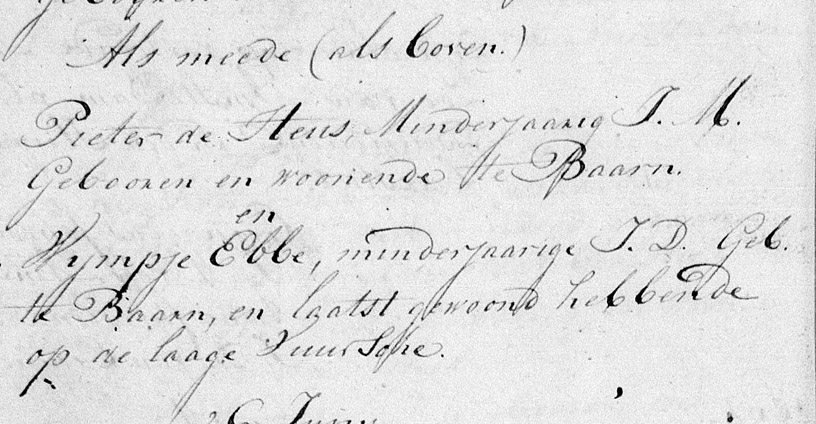 Als meede (als boven.)
Pieter de Heus, Minderjaarig J. M.
Gebooren en woonende te Baarn.
en
Wympje Ebbe, minderjaarige J. D. Geb.
te Baarn, en laatst gewoond hebbende
op de laage Vuursche.